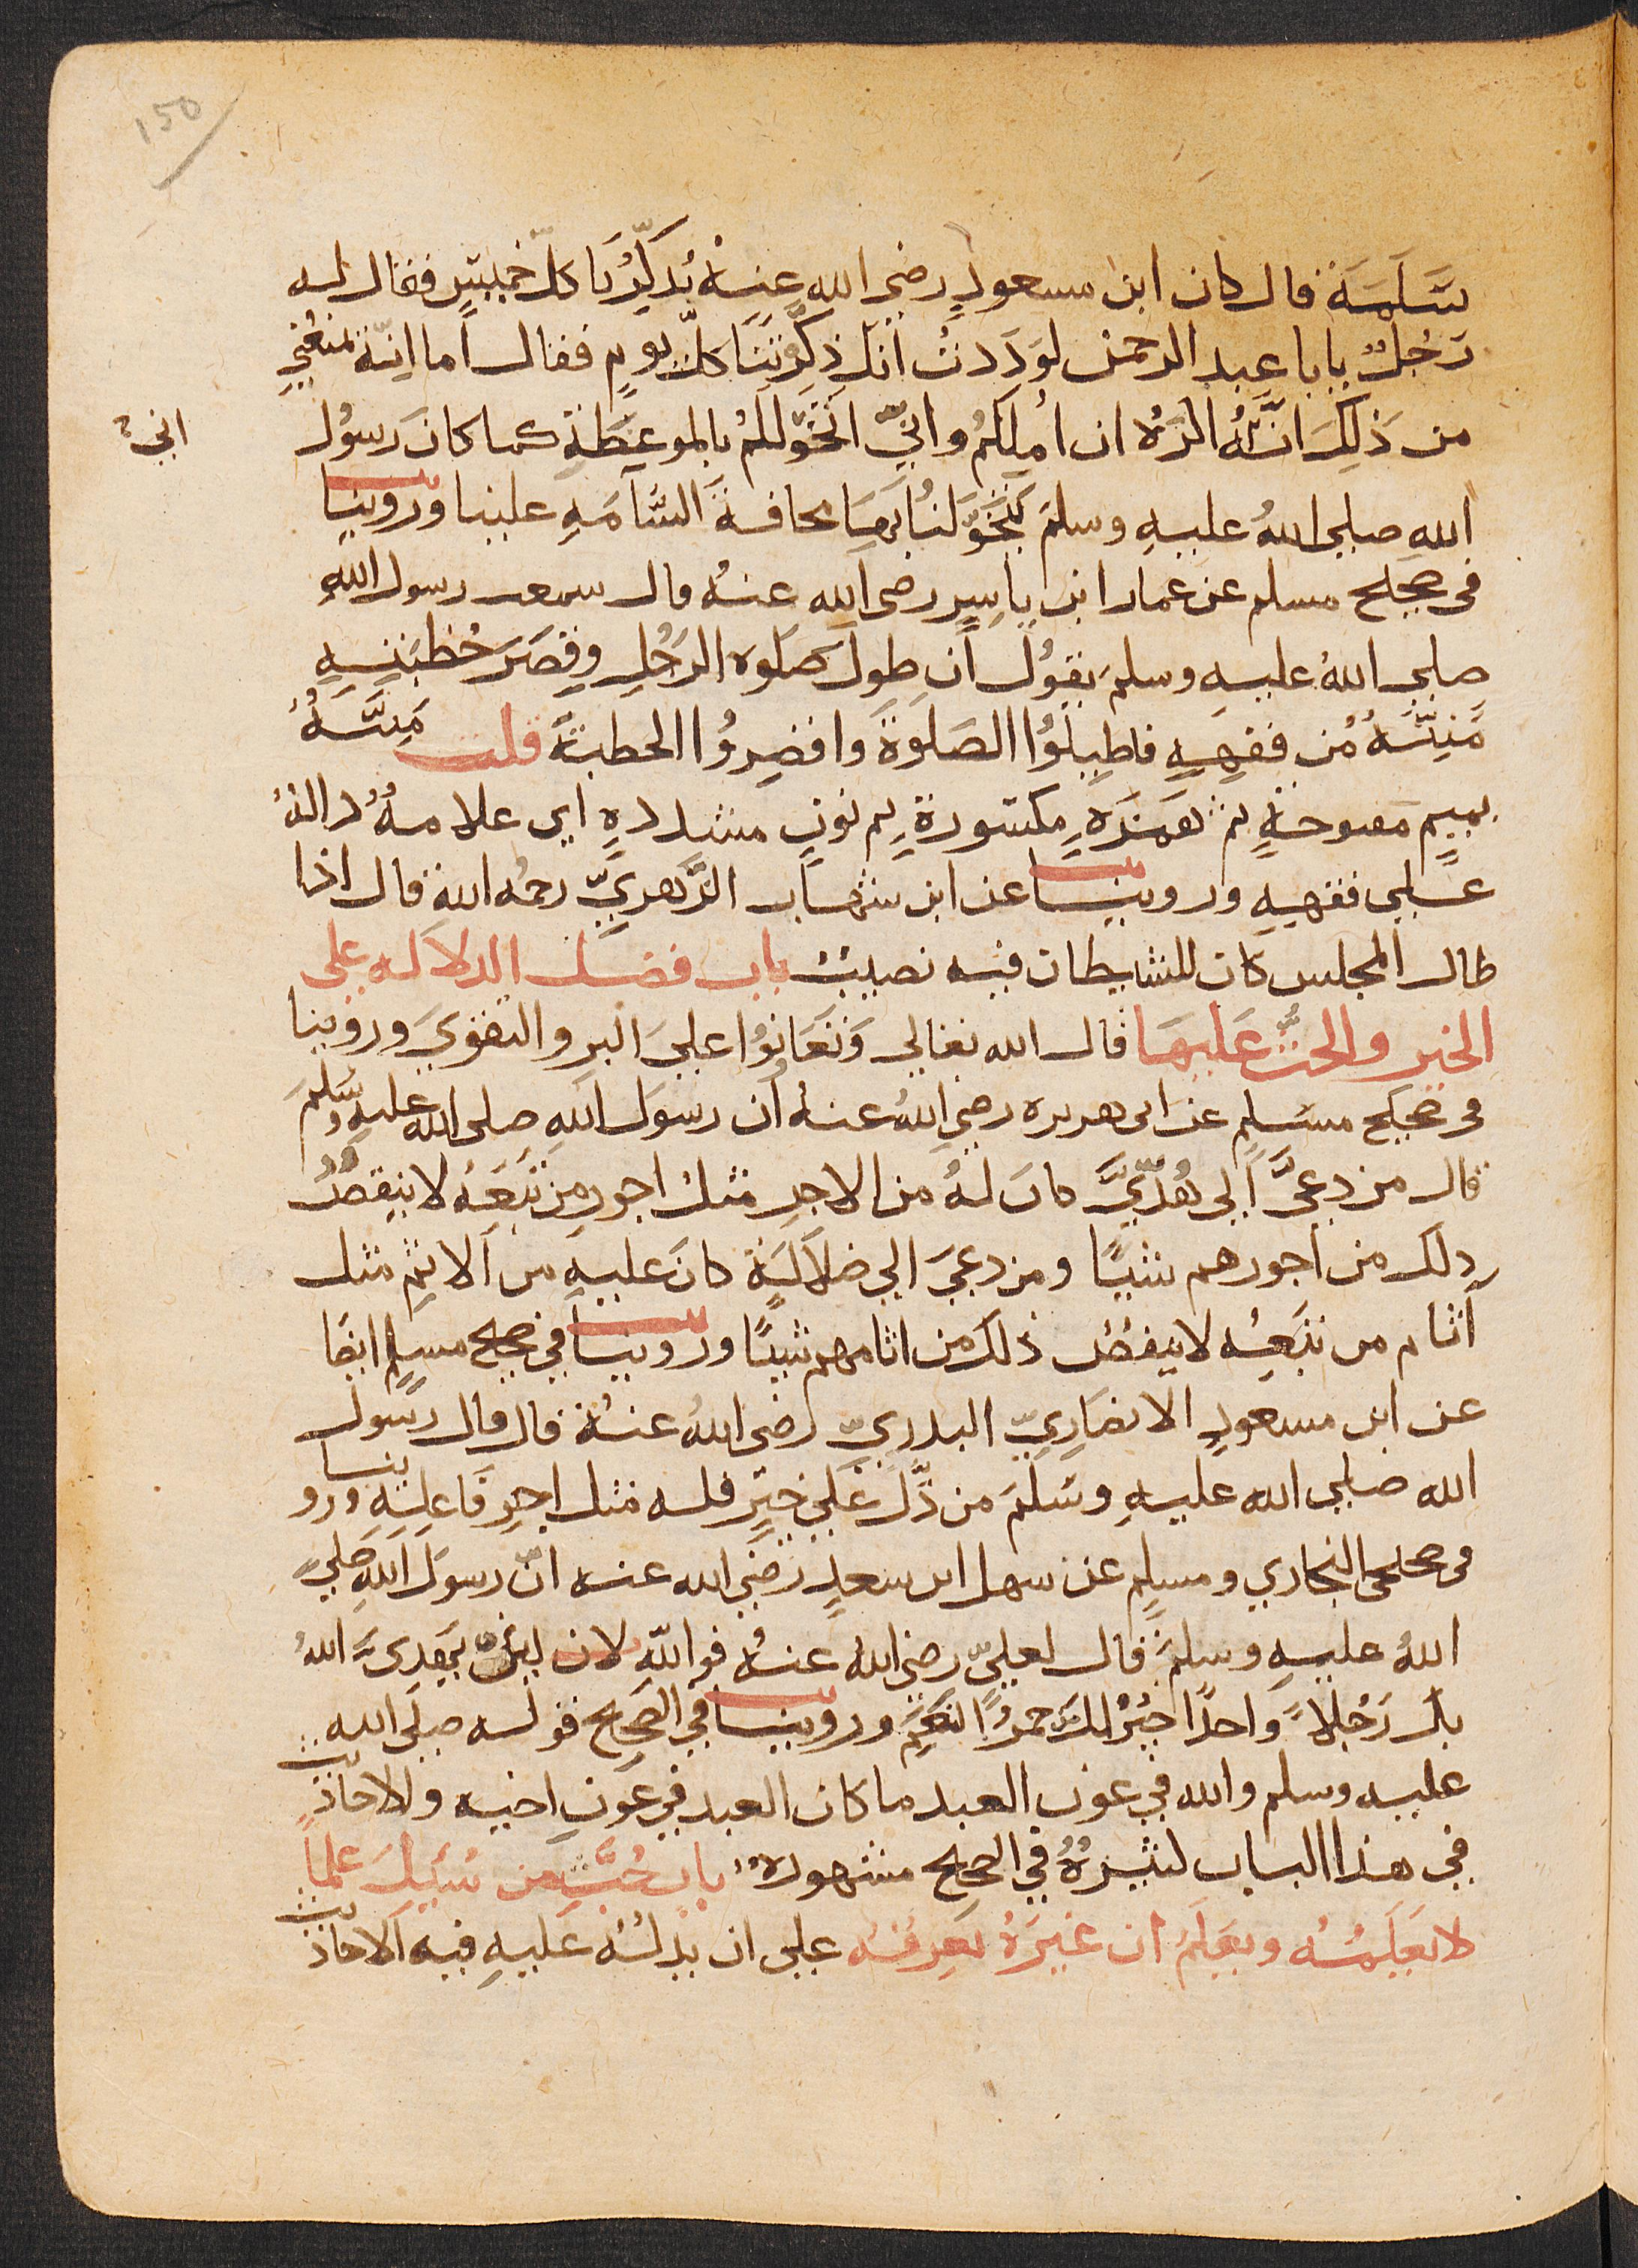 150
سَلَمَة قال كان ابن مسعودٍ رضي الله عنهُ يُذَكِّرُنَا كلّ خميسٍ فقال له
رَجُلٌ يابا عبد الرحمن لوَدَدتُ انكَ ذكَّرتَنَا كلّ يومٍ فقال اما انّه يمنعُني
من ذَلِكَ انَّهُ اكرَهُ ان امِلكُم وانيّ اتخَوّلكمُ بالموعِظَةِ كما كانَ رَسوُل
اني
الله صلي اللهُ عليهِ وسلمَ يَتَخَوَّلنُا بِهَا مخافةَ السَّآمَهِ علينا وَروينا
في صحيح مسلم عن عمار ابن ياسِرٍ رضي الله عنهُ قال سمعت رسول الله
صلي اللهُ عليهِ وسلمَ يقوُل ان طولَ صَلوه الرَجُلِ وقِصَرَ خُطبَتِهِ
مَئِنَّهُ مُن فقهِهِ فاطيلوُا الصَلوَةَ واقصِروُا الخطبةَ قلت مَئِنَّهُ
بميمٍ مفتوحةٍ ثم همزَهٍ مكسورةٍ ثم نونٍ مشددهٍ اي علامهٌ دالهٌ
علي فقههِ وروينا عن ابن شهاب الزُّهريّ رحمُه الله قال اذا
طال المجلس كان للشيطان فيه نصيبٌ باب فضل الدلاله علي
الخير والحثُّ عَليهَا قال الله تعالي وَتعَانوُا عليَ البر والتقويَ وروينا
في صحيح مسلمٍ عن ابي هريره رضيِ اللهُ عنهُ ان رسوَل اللهِ صلي الله عليهِ وسَلمَ
قال من دعيَّ الي هُدّيَّ كانَ لهُ من الاجرِ مثلُ اجورِ من تَبَعَهُ لا ينقصُ
ذلك من اجورهم شيًا ومن دعيَ الي ضلاَلَةٍ كانَ عليهِ من الاثِمِ مثل
آثام من تبَعِهُ لا ينقصُ ذلكَ من اثامهم شيًا وروينا في صحيح مسلمٍ ايضَا
عن ابن مسعودٍ الانصَارِيّ البدريّ رضي اللهُ عنهُ قال قال رسَول
الله صلي الله عليهِ وسَلمَ من دَّلَ عَلي خيرٍ فله مثل اجرِ فاعلِهِ ورو
ينا
في صحيحي البخاري ومسلمٍ عن سهل ابن سعدٍ رضَي الله عنه انّ رسوَل اللهِ صلي
اللهُ عليهِ وسلمَ قال لعليّ رضي اللهُ عنهُ فو اللهِ لان يهديَ اللهُ
بك رَجُلاً واحدًا خيرٌ لكَ من حمرُ النَعِمَ وروينا في الصَحِيح قوله صلي الله
عليه وسلم والله في عون العبد ما كان العبد في عَونِ اخيه والاحاد
يث
في هذا الباب كثيرهٌ في الصحيح مشهورهٌ باب حُثَّ من سُئِلَ علماً
لا يعَلَمُهُ ويعَلَمُ ان غيَرَهُ يَعِرفهُ علي ان يدلهُ عَليهِ فيه الاحاد
يث